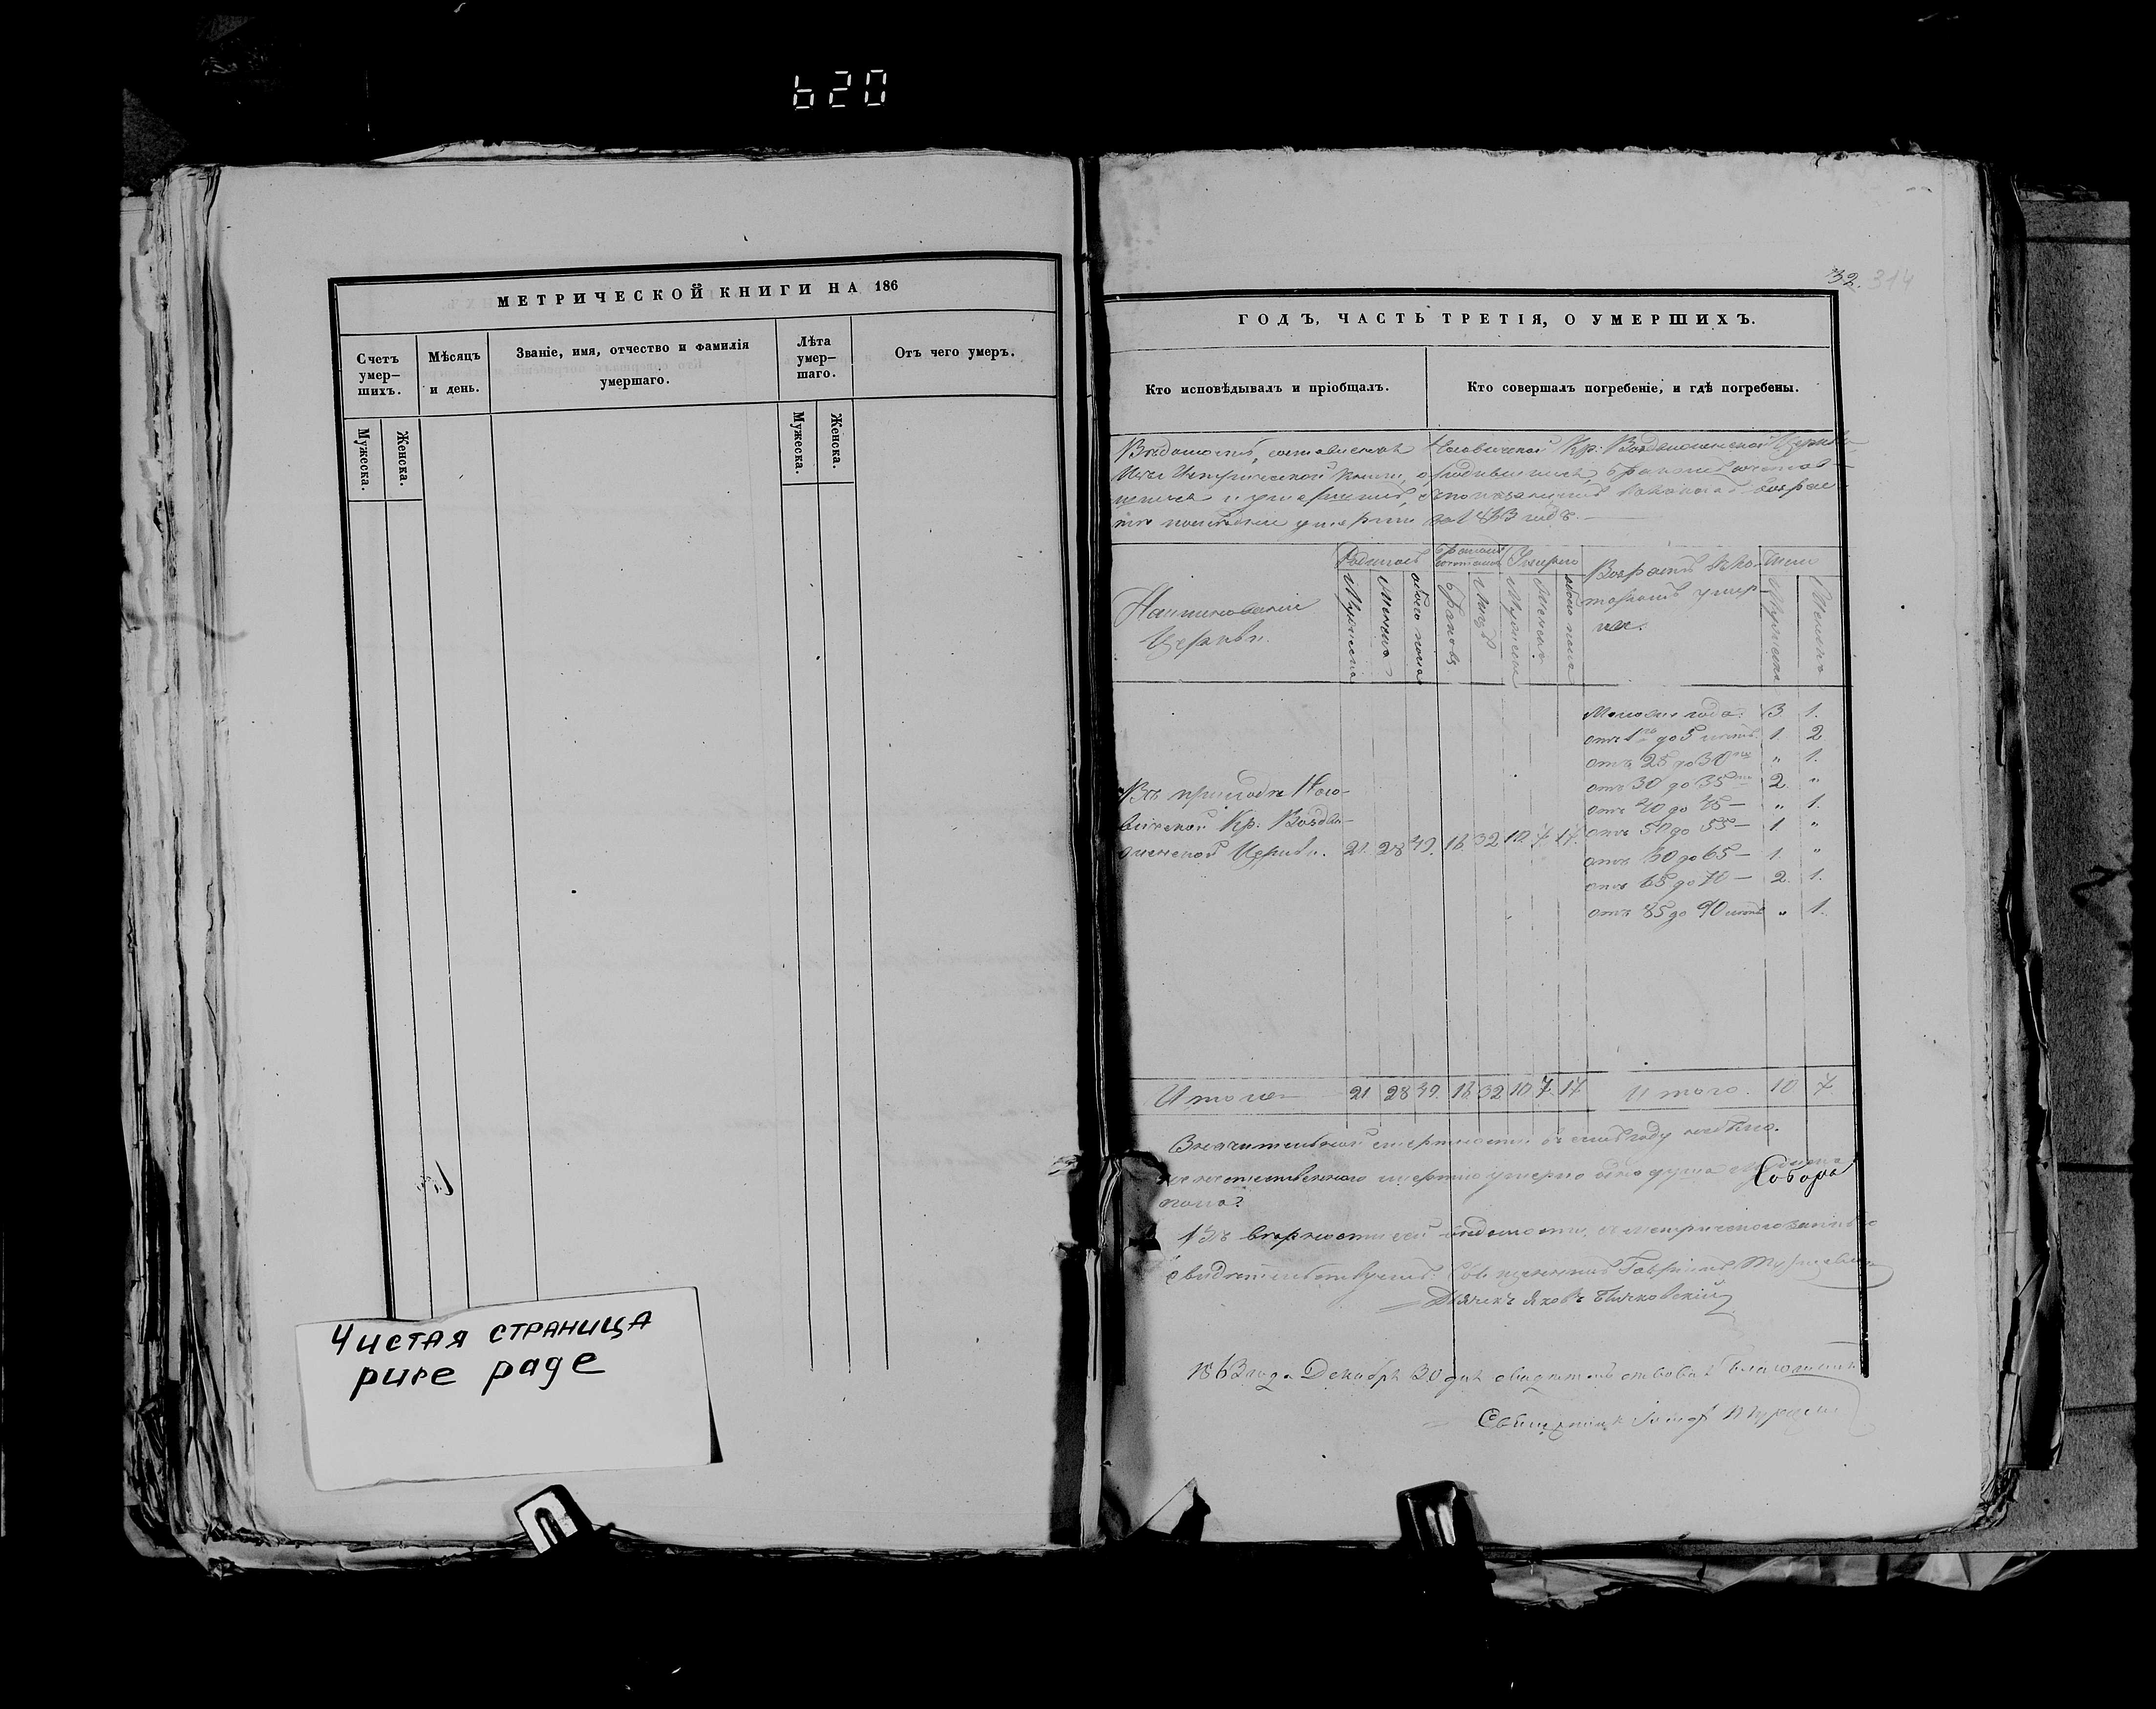 620
МЕТРИЧЕСКОЙ КНИГИ НА 186
Счетъ умер—шихъ.
Мѣсяцъ и день.
Званіе, имя, отчество и фамилія умершаго.
Лѣта умер—шаго.
Отъ чего умеръ.
Мужеска.
Женска.
Мужеска.
Женска.
Чистая страница
pure page
32. 314
ГОДЪ, ЧАСТЬ ТРЕТІЯ, О УМЕРШИХЪ.
Кто исповѣдывалъ и пріобщалъ.
Кто совершалъ погребеніе, и гдѣ погребены.
Вѣдомость, составленная Кр: Воздвиженской Церкви
Изъ Метрической книги, о родившихся, бракомъ сочетав—
шихся и умершихъ, съ показаніемъ
умерли за 1863 годъ.
Наименованіе
Церкви.
Родилось
Мужеска
Женска
обоего пола
Бракомъ
Браковъ
Лицъ
Умерло
Мужеска
Женска
обоего пола
Возрастъ въ ко—
торомъ умер
ли.
Мужеска
Женска
Менѣе года. 3 1.
отъ 1го до 5 лѣтъ 1 2
отъ 25 до 30 " 1.
отъ 30 до 35 2 "
отъ 40 до 45 — " 1.
отъ 50 до 55 — 1. "
отъ 60 до 65 — 1. "
отъ 65 до 70 — 2. 1.
отъ 85 до 90 лѣтъ " 1.
Въ приходѣ
Кр. Воздви—
женской Церкви. 21. 28 49. 16. 32 10. 7. 17.
Итого 21 28 49. 16 32 10 7. 17. Итого. 10 7.
Значительной смертности въ семъ году небыло.
неестественною смертію умерло одна душа мужеска
Собора
пола?
Въ вѣрности сей вѣдомости, съ метрическою
свидѣтельствуемъ: Священникъ Гавріилъ
Дьячекъ Яковъ
1863 года Декабря 30 дня свидѣтельствовалъ Благочинный
Священникъ